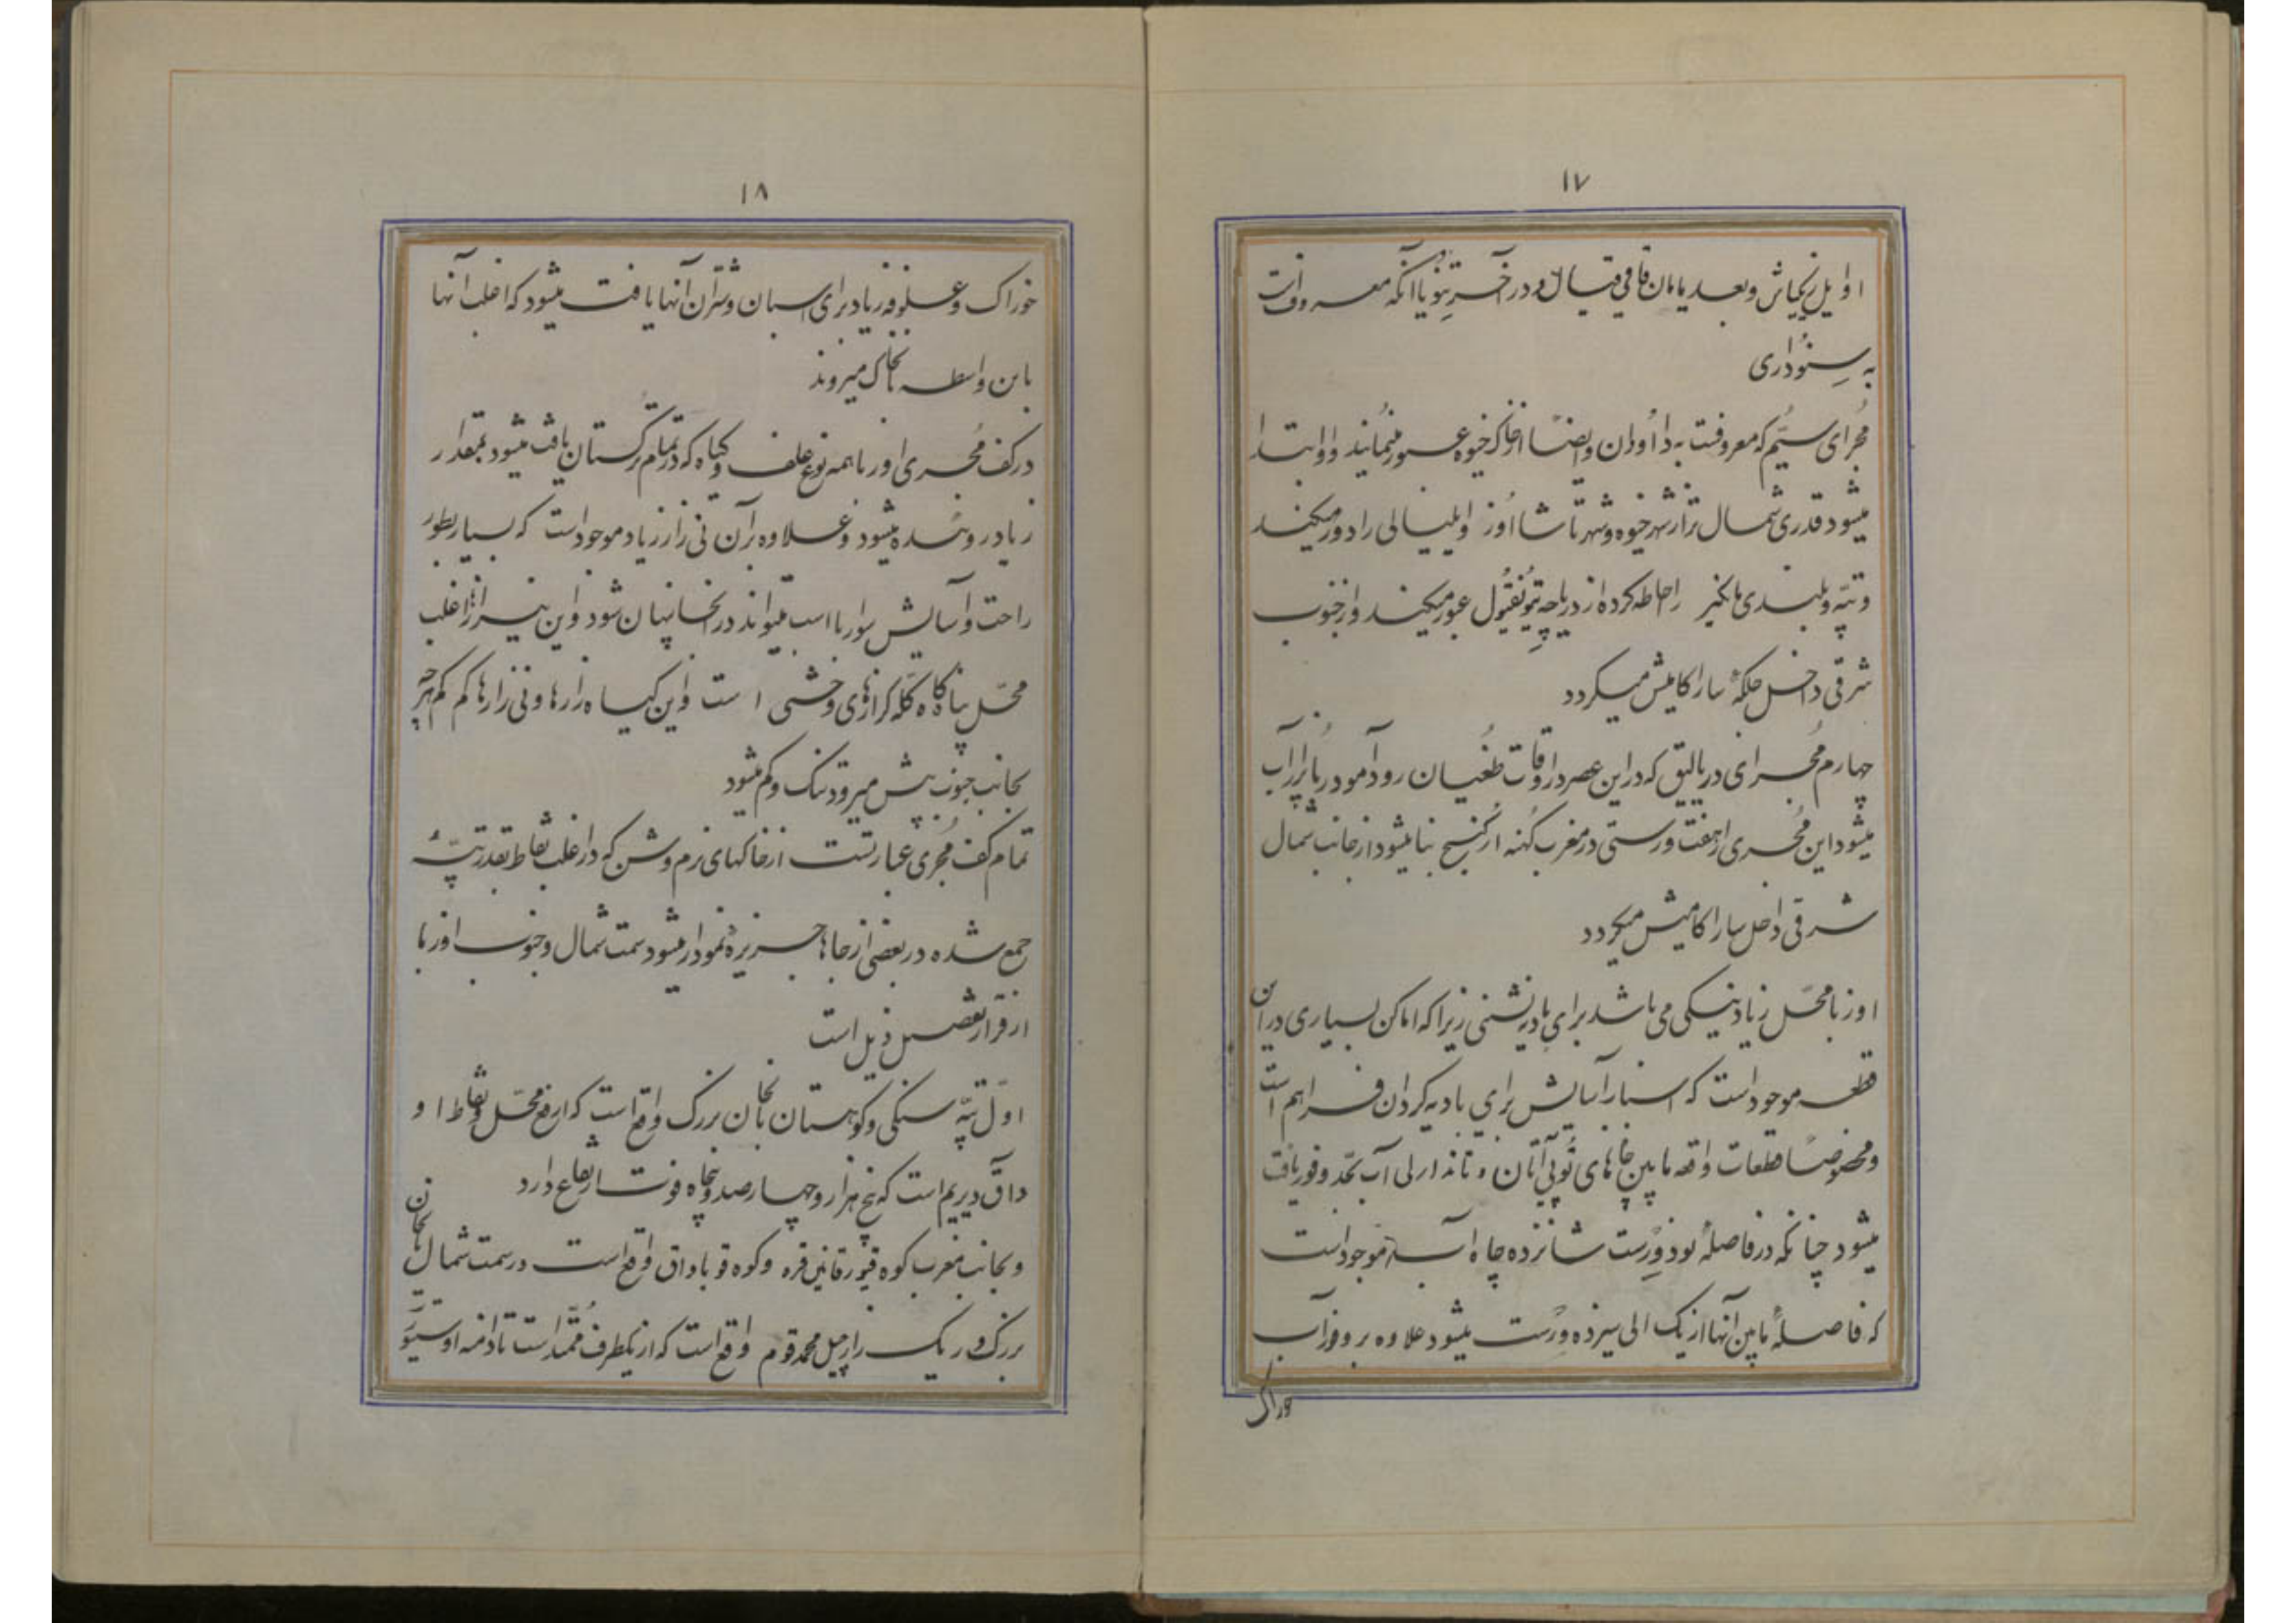 ۱۷
اوایل و بعد یامان و در آخر یا آنکه معروفست
به
مجرای سیّم که معروفست به داودان و ایضاً از خاک خیوه عبور مینمایند و ابتدا
میشود قدری شمال تر از شهر خیوه و شهر تاشااوز را دور میکند
و تپه و بلندی را احاطه کرده از دریاچه عبور میکند و از جنوب
شرقی داخل جلگهٔ ساراکامیش میگردد
چهارم مجرای دریالیق که در این عصر در اوقات طغیان رود آمودریا پر از آب
میشود این مجری از هفت ورستی در مغرب کهنه ارگنج بنا میشود از جانب شمال
شرقی داخل ساراکامیش میگردد
اوزبا محل زیاد نیکی می باشد برای بادیه نشینی زیرا که اماکن بسیاری در این
قطعه موجود است که اسباب آسایش برای بادیه گردان فراهم است
و مخصوصاً قطعات واقعه مابین چاههای آب بحد وفور یافت
میشود چنانکه در فاصلهٔ نود ورست شانزده چاه آب موجود است
که فاصلهٔ مابین آنها از یک الی سیزده ورست میشود علاوه بر وفور آب
خوراک
۱۸
خوراک و علوفه زیاد برای اسبان و شتران آنها یافت میشود که اغلب آنها
باین واسطه بخاک میروند
در کف مجری اوزبا همه نوع علف و گیاه که در تمام ترکستان یافت میشود بمقدار
زیاد روئیده میشود و علاوه بر آن نی زار زیاد موجود است که بسیار بطور
راحت و آسایش سوار با اسب میتواند در آنجا پنهان شود و این نیزارها اغلب
محل پناگاه گله گرازهای وحشی است و این گیاه زارها و نی زارها کم کم هر چه
بجانب جنوب پیش میرود تنک و کم میشود
تمام کف مجری عبارتست از خاکهای نرم و شن که در اغلب نقاط بقدر تپّهٔ
جمع شده در بعضی از جاها جزیره نمودار میشود سمت شمال و جنوب اوزبا
از قرار تفصیل ذیل است
اول تپّه سنگی و کوهستان بالخان بزرگ واقع است که ارفع محل و نقاط او
داق دیریم است که پنج هزار و چهارصد و پنجاه فوت ارتفاع دارد
و بجانب مغرب کوه قره و کوه قوباداق واقع است در سمت شمال بالخان
بزرگ و ریک زار چیل محمد قوم واقع است که از یکطرف ممتد است تا دامنه